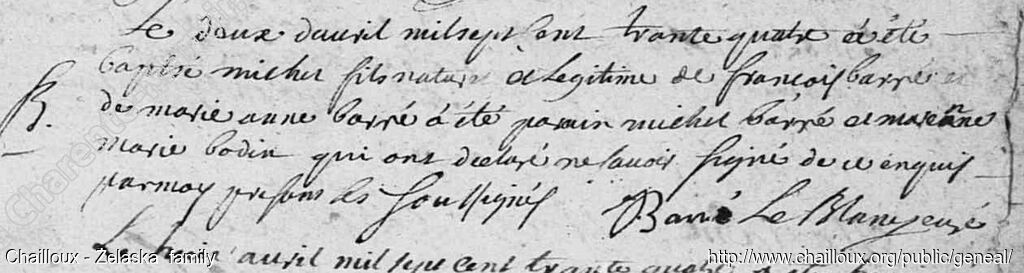 Le deux dauril mil sept cent trante quatre a été
baptisé michel fils naturel et legitime de francois barré et
de marie anne barré a été parain michel barré et maraine
marie bodin qui ont declaré ne sauoir signé de ce enquis
B.
par moy presens les soussignés Barré Le Blanc curé
auril mil sept cent trante quatre a été
Chailloux - Zelaska family
http://www.chailloux.org/public/geneal/